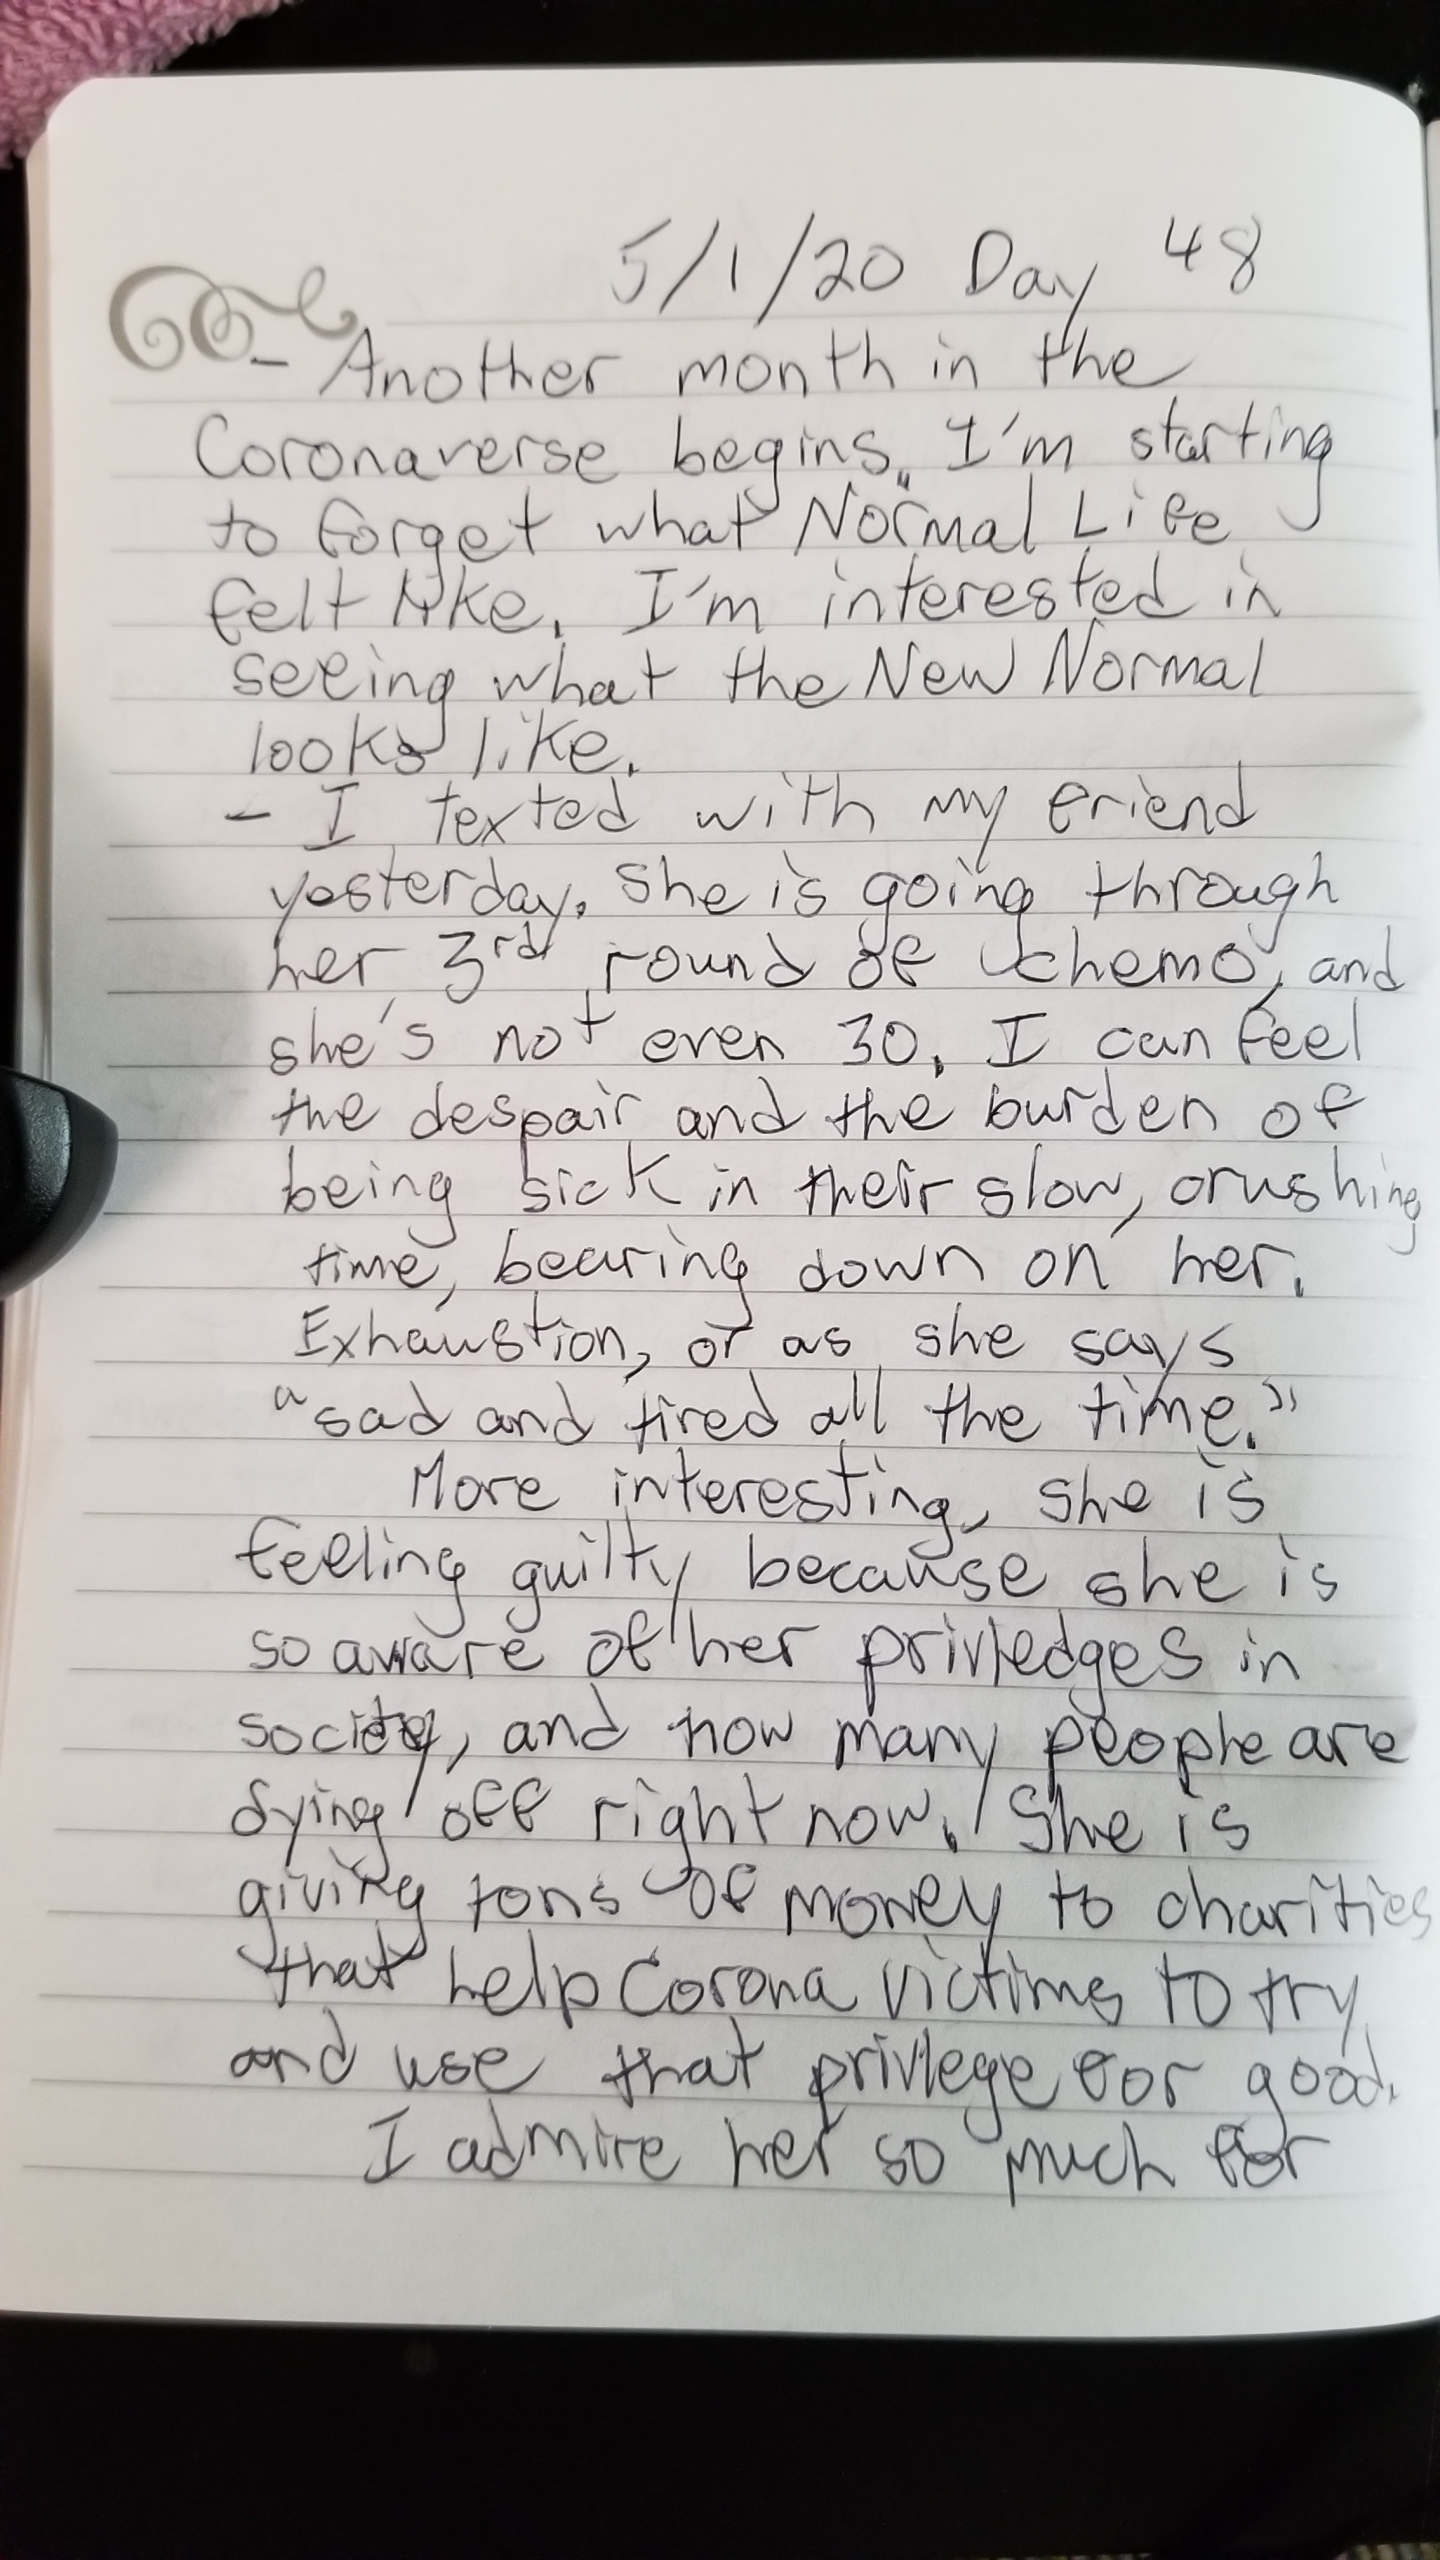 5/1/20 Day 48
- Another month in the
Coronaverse begins. I'm starting
to forget what Normal Life
felt like. I'm interested in
seeing what the New Normal
looks like.
- I texted with my friend
yesterday. She is going through
her 3rd round of chemo, and
she's not even 30. I can feel
the despair and the burden of
being sick in their slow, crushing
time, bearing down on her.
Exhaustion, or as she says
"sad and tired all the time."
More interesting, she is
feeling guilty because she is
so aware of her privledges in
society, and how many people are
dying off right now. She is
giving tons of money to charities
that help Corona victims to try
and use that privlege for good.
I admire her so much for